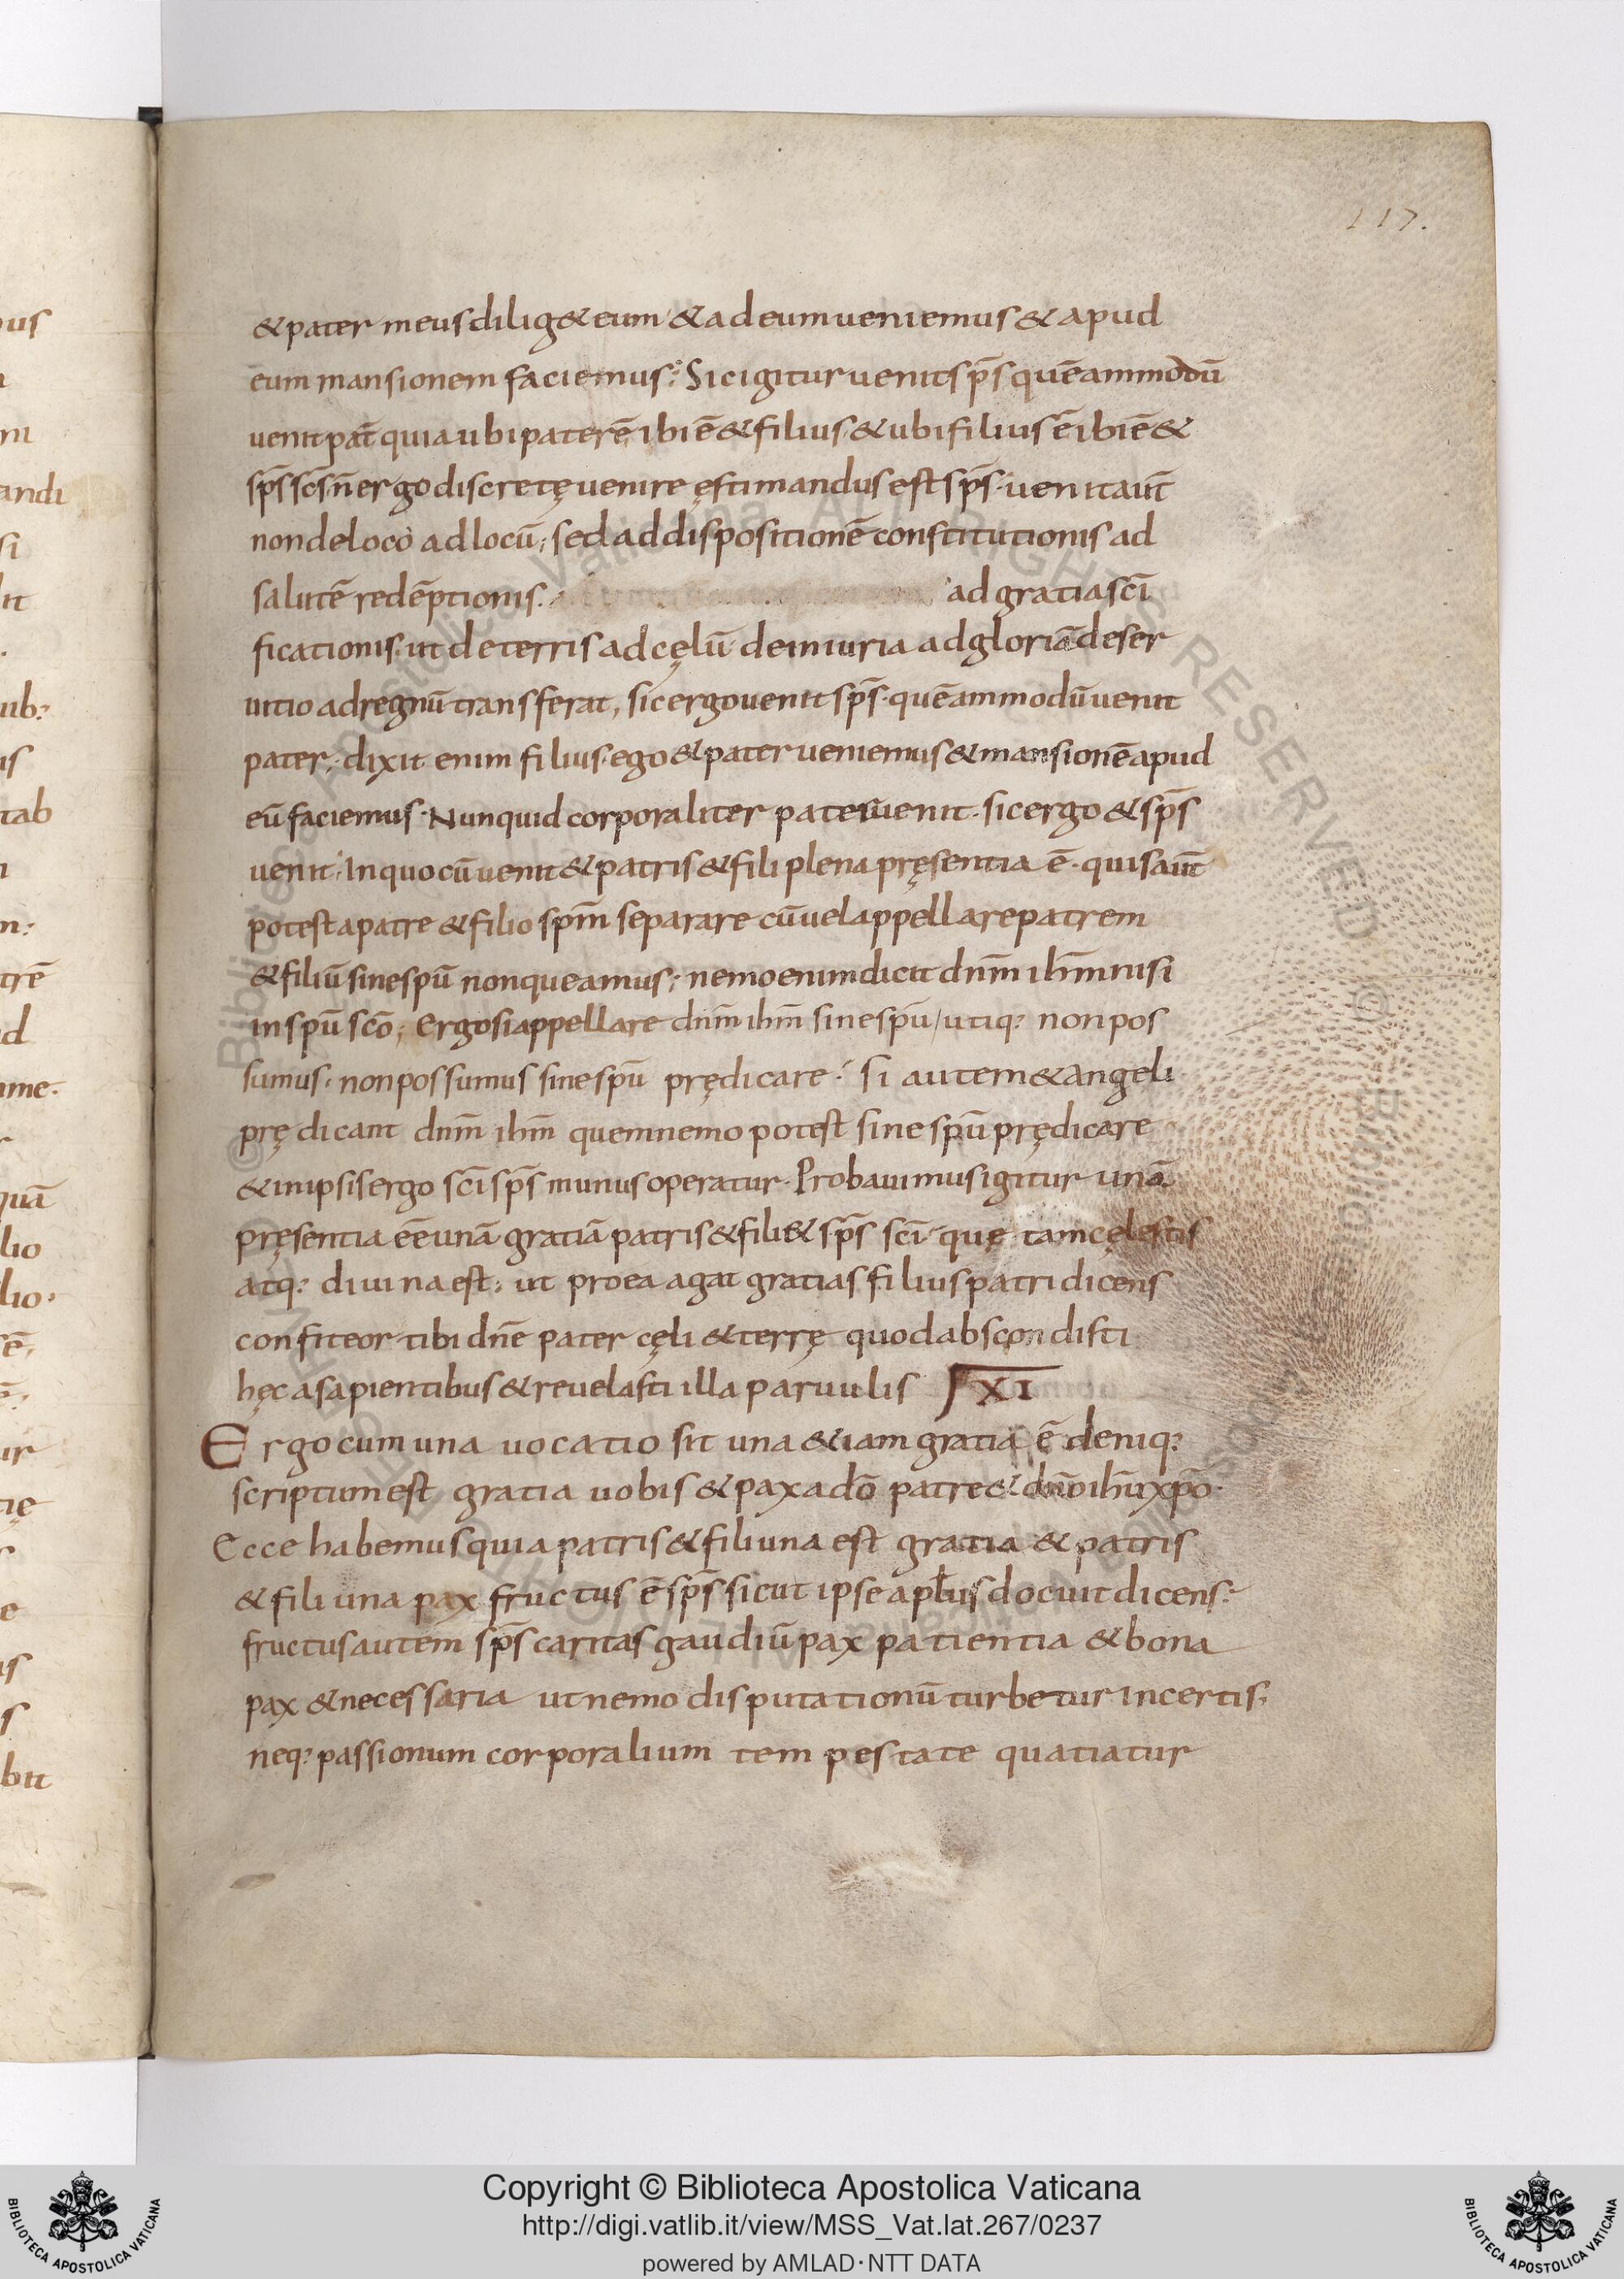 117.
& pater meus dilig& eum & ad eum ueniemus & apud
eum mansionem faciemus; Sic igitur uenit sp̄s quēammodū
uenit pat̄ quia ubi pater ē ibi ē & filius & ubi filius ē ibi ē &
sp̄s sc̄s n̄ ergo discretę uenire ęstimandus est sp̄s · uenit aut̄
non de loco ad locū; sed ad dispositionē constitutionis ad
salutē redēptionis. ad gratia sc̄i
ficationis · ut de terris ad cęlū de iniuria ad gloriā de ser
uitio ad regnū transferat, sic ergo uenit sp̄s · quēammodū uenit
pater; dixit enim filius · ego & pater ueniemus & mansionē apud
eū faciemus · Nunquid corporaliter pater uenit · sic ergo & sp̄s
uenit · In quo cū uenit & patris & fili plena pręsentia ē · quis aut̄
potest a patre & filio sp̄m separare cū uel appellare patrem
& filiū sine spū non queamus; nemo enim dicit dn̄m ihm̄ nisi
in spū sc̄o; Ergo si appellare dn̄m ihm̄ sine spū / utiq; non pos
sumus · non possumus sine spū prędicare · si autem & angeli
prędicant dn̄m ihm̄ quem nemo potest sine spū prędicare
& in ipsis ergo sc̄i sp̄s munus operatur · Probauimus igitur unā
pręsentia ēe unā gratiā patris & fili & sp̄s sc̄i quę tam cęlestis
atq; diuina est; ut pro ea agat gratias filius patri dicens
confiteor tibi dn̄e pater cęli & terrę quod abscondisti
hęc a sapientibus & reuelasti illa paruulis XI
Ergo cum una uocatio sit una &iam gratia ē deniq;
scriptum est gratia uobis & pax a dō patre & dn̄o ihū xp̄o ·
Ecce habemus quia patris & fili una est gratia & patris
& fili una pax fructus ē sp̄s sicut ipse aplus docuit dicens ·
fructus autem sp̄s caritas gaudiū pax patientia & bona
pax & necessaria ut nemo disputationū turbetur incertis ·
neq; passionum corporalium tempestate quatiatur
ous
m
andi
si
it
uib;
is
tab
m:
trē
d
me.
quā
lio
lio.
ē.
ir
tię
e
is
s
bit
Copyright © Biblioteca Apostolica Vaticana
http://digi.vatlib.it/view/MSS_Vat.lat.267/0237
powered by AMLAD · NTT DATA
BIBLIOTECA APOSTOLICA VATICANA
BIBLIOTECA APOSTOLICA VATICANA